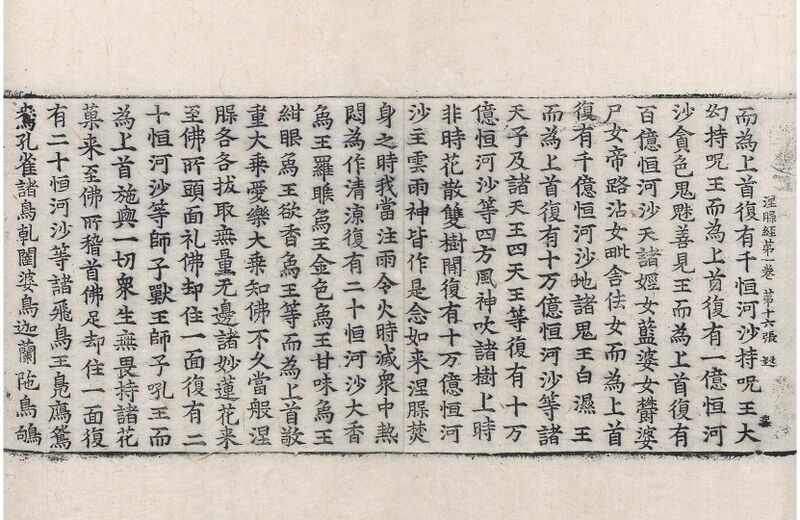 涅槃經第一卷 第十六張 疑
而為上首復有千恒河沙持呪王大
幻持呪王而為上首復有一億恒河
沙貪色鬼魅善見王而為上首復有
百億恒河沙天諸婬女藍婆女欝婆
尸女帝路沾女毗舍佉女而為上首
復有千億恒河沙地諸鬼王白濕王
而為上首復有十万億恒河沙等諸
天子及諸天王四天王等復有十万
億恒河沙等四方風神吹諸樹上時
非時花散雙樹間復有十万億恒河
沙主雲雨神皆作是念如来涅槃焚
身之時我當注雨令火時滅衆中熱
悶為作清涼復有二十恒河沙大香
象王羅睺象王金色象王甘味象王
紺眼象王欲香象王等而為上首敬
重大乗愛樂大乗知佛不久當般涅
槃各各拔取無量无邊諸妙蓮花来
至佛所頭面礼佛却住一面復有二
十恒河沙等師子獸王師子吼王而
為上首施與一切衆生無畏持諸花
菓来至佛所稽首佛足却住一面復
有二十恒河沙等諸飛鳥王鳬鴈鴛
鴦孔雀諸鳥乹闥婆鳥迦蘭陁鳥鴝